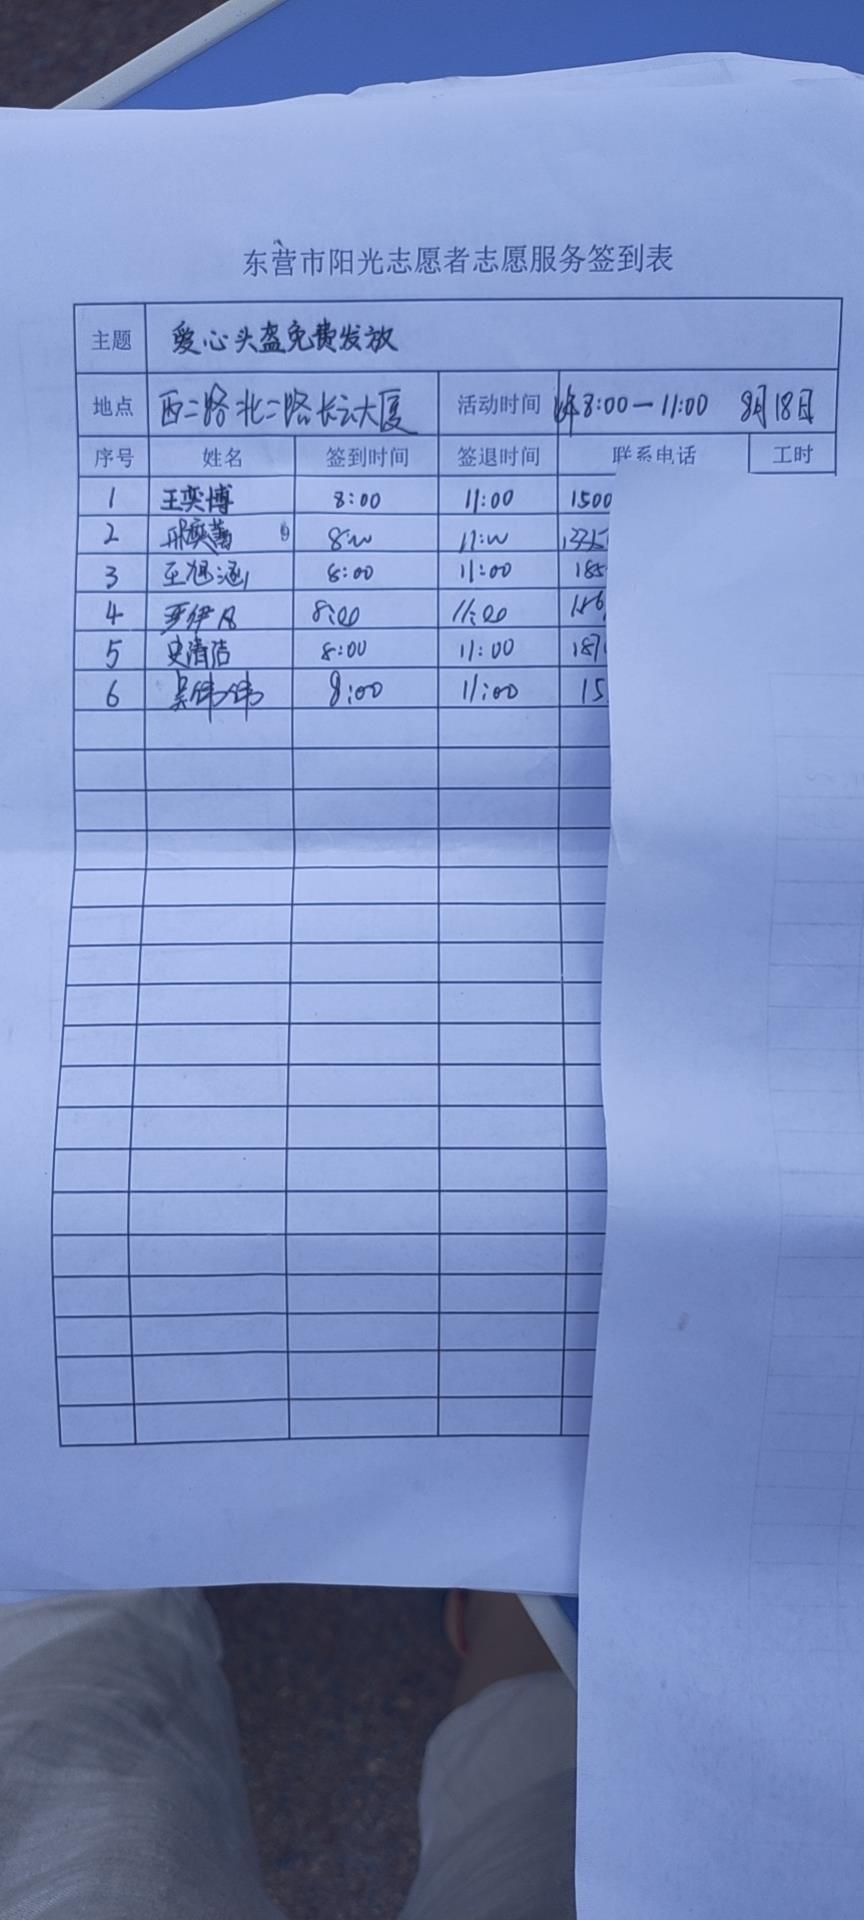 东营市阳光志愿者志愿服务签到表
主题 爱心头盔免费发放
地点 西二路北二路长云大厦 活动时间 8:00—11:00 8月18日
序号 姓名 签到时间 签退时间 联系电话 工时
1 王奕博 8:00 11:00 1500
2 8:00 11:00 1335
3 王旭涵 8:00 11:00 185
4 8:00 11:00 186
5 史清洁 8:00 11:00 187
6 吴伟伟 8:00 11:00 15